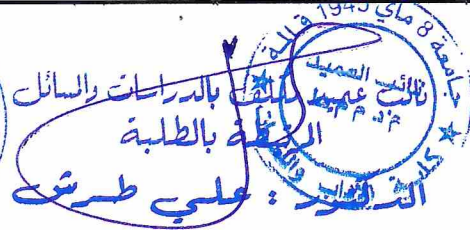 جامعة 8 ماي 1945 قالمة
نائب العميد
نائب عميد مكلف بالدراسات والمسائل
المرتبطة بالطلبة
الدكتور : علي طرش
كلية الآداب واللغات